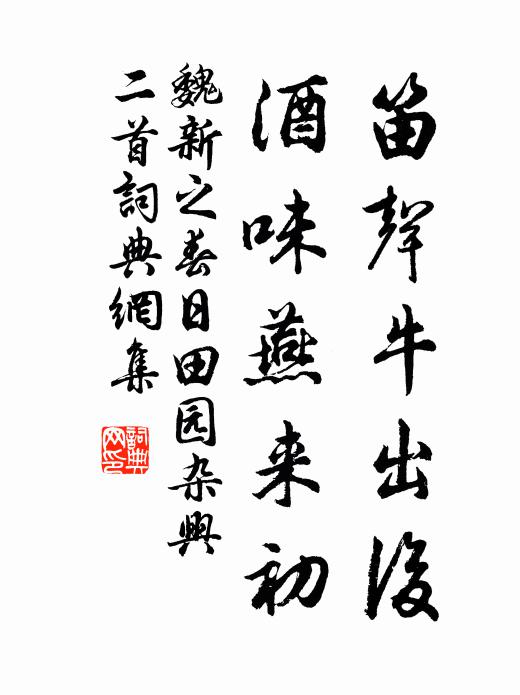 笛聲牛出後
酒味燕来初
魏新之春日田园杂興
二首詞典網集
詞典
网印